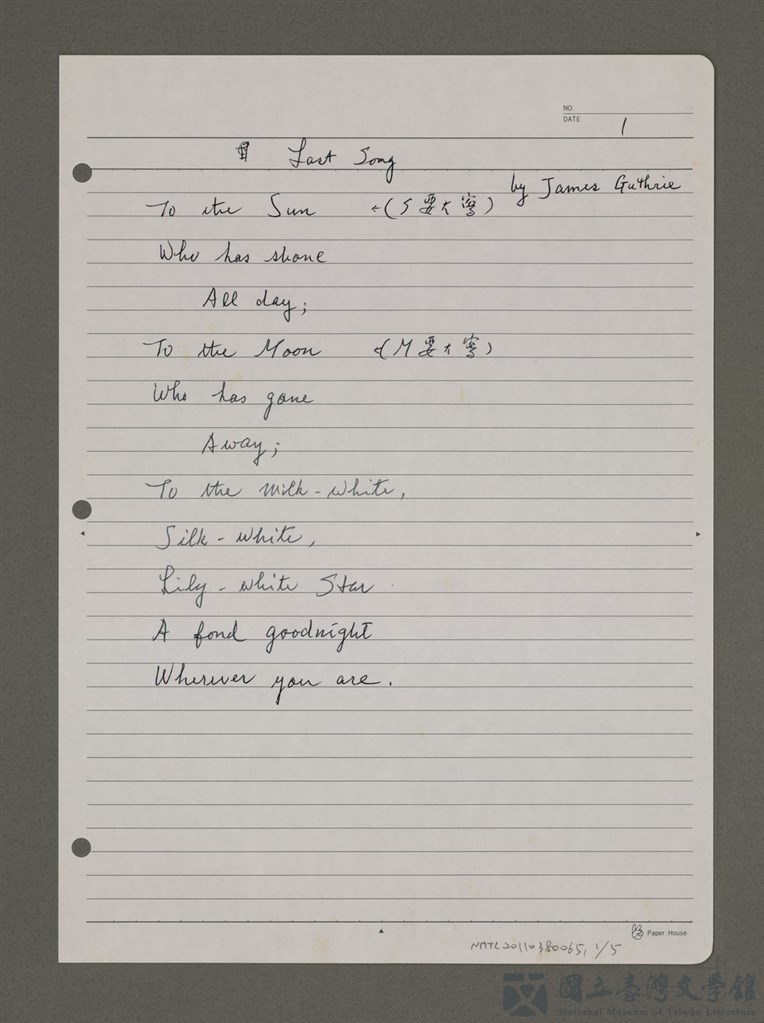 NO.
DATE
1
Last Song
by James Guthrie
To the Sun ←(S要大寫)
Who has shone
All day;
To the Moon ←(M要大寫)
Who has gone
Away;
To the milk-white,
Silk-white,
Lily-white Star
A fond goodnight
Wherever you are.
Paper House
NMTL20110380065, 1/5
國立臺灣文學館
National Museum of Taiwan Literature